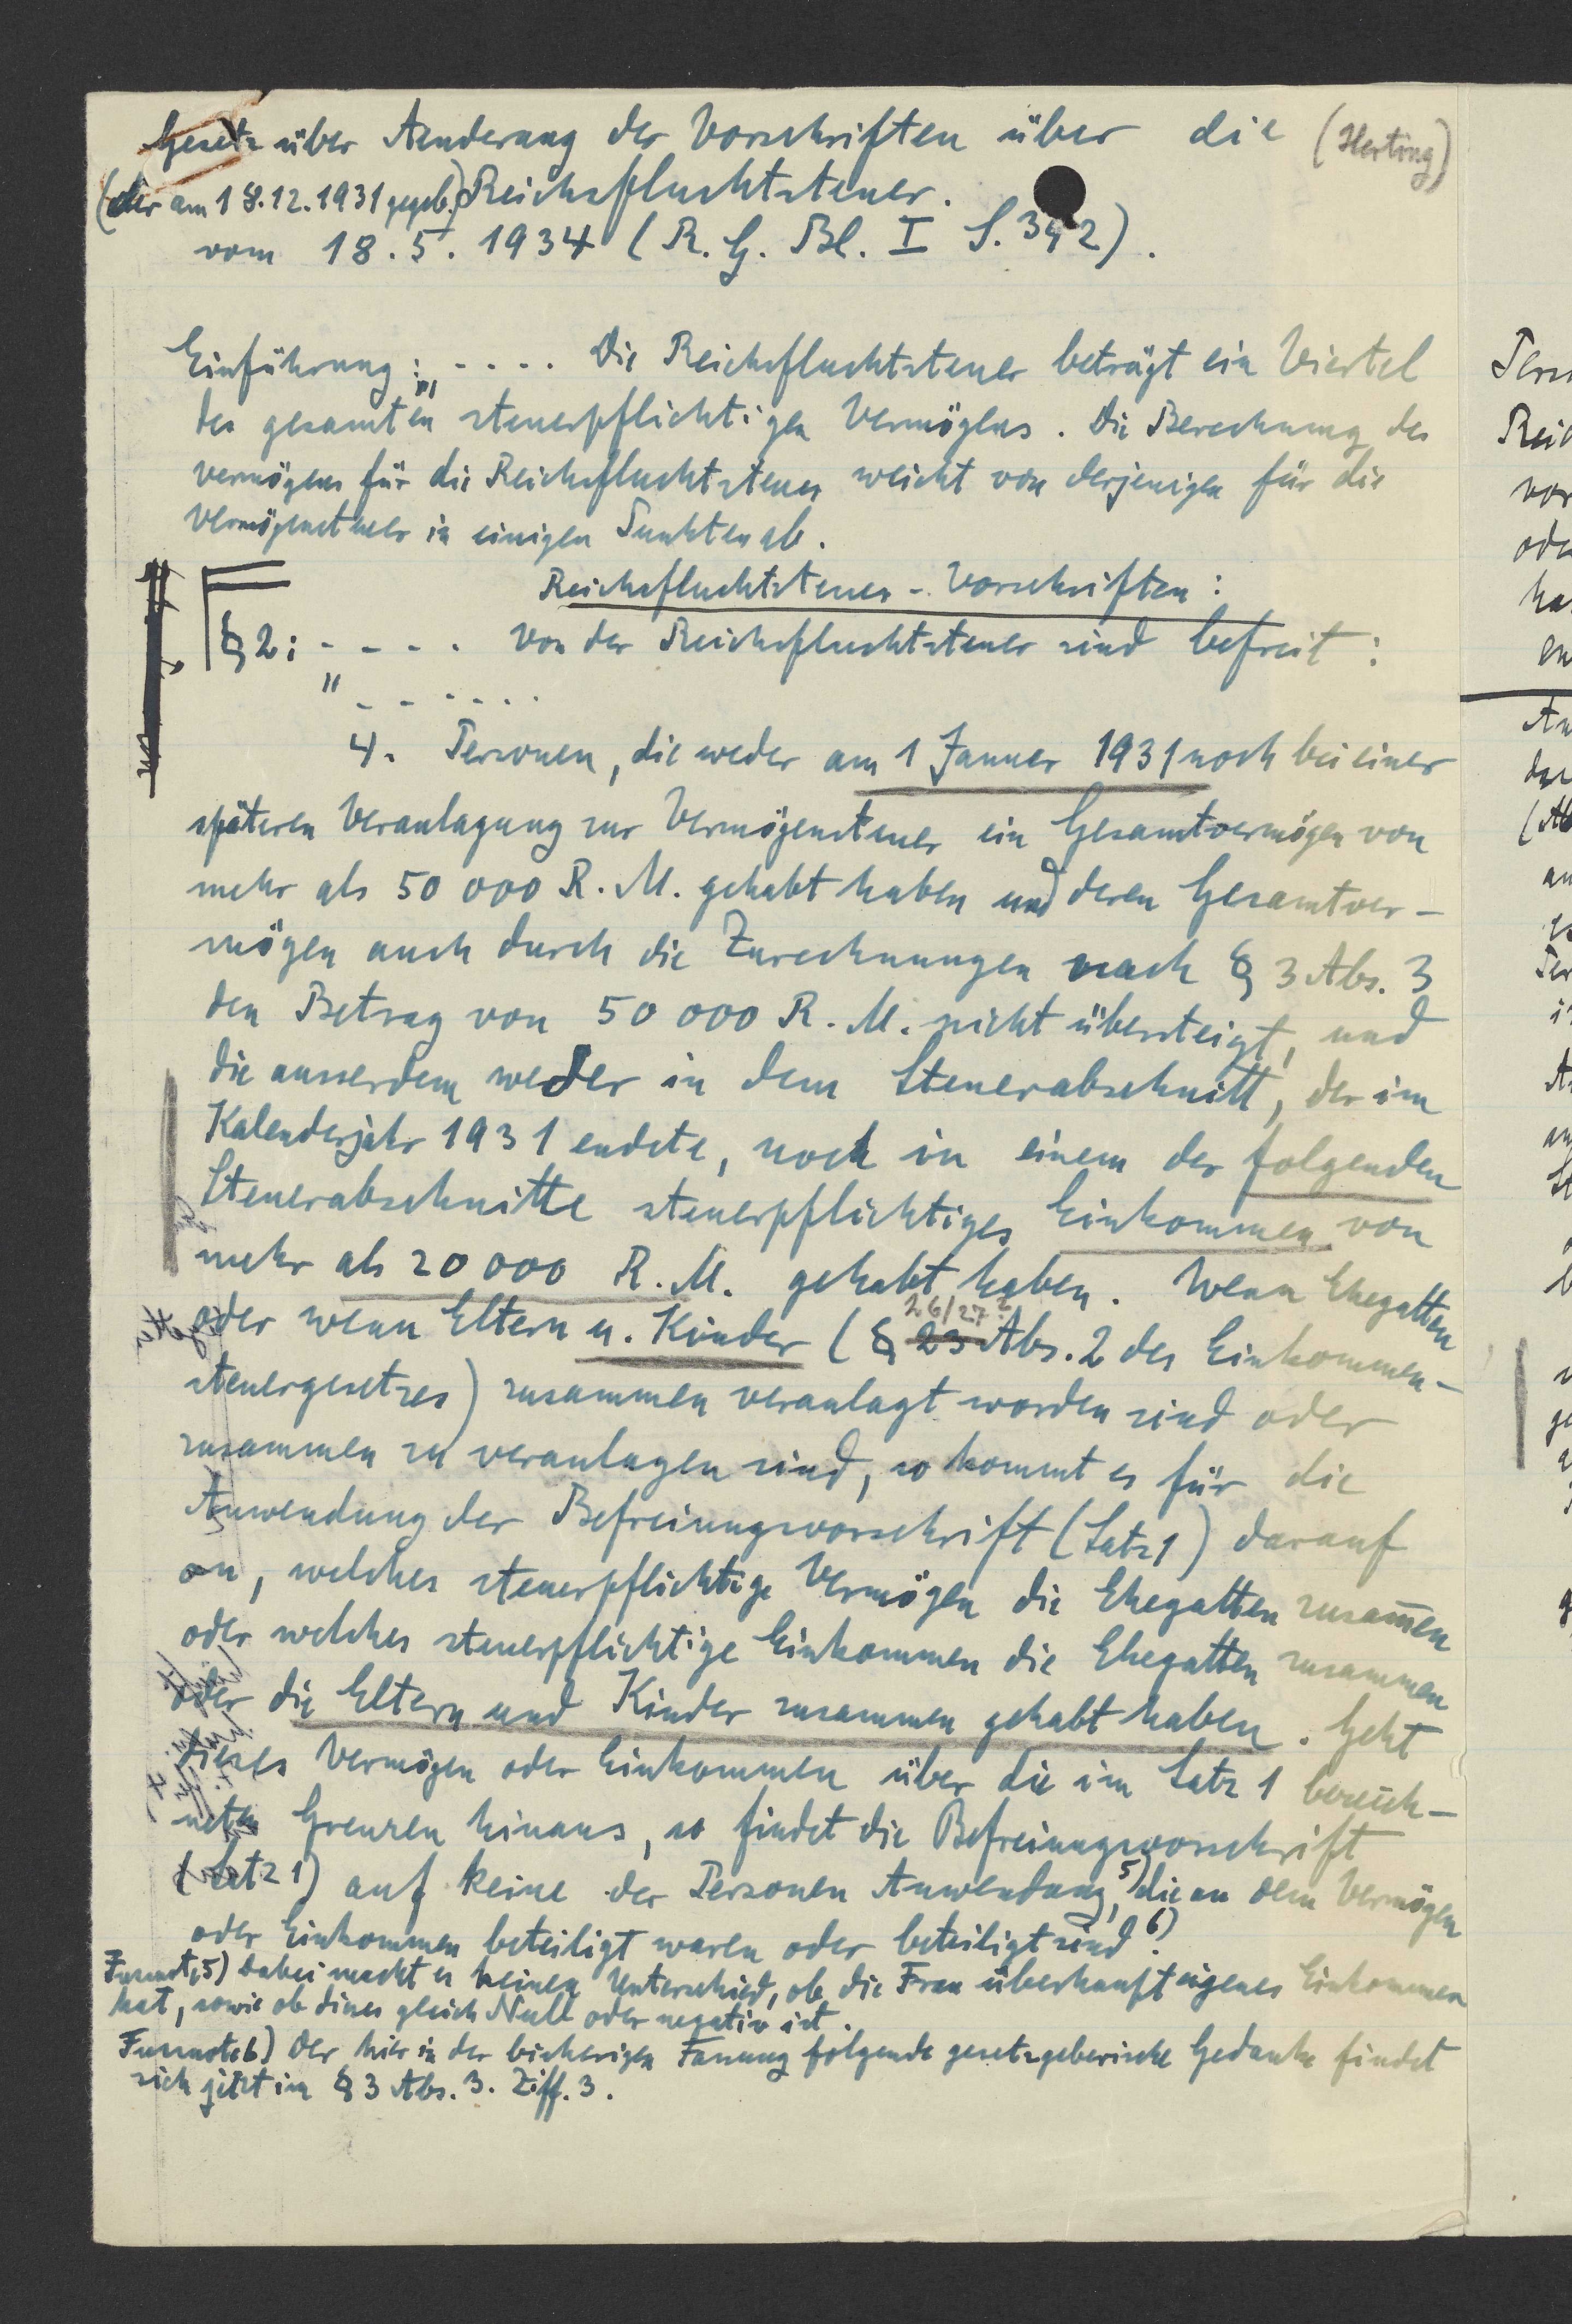 Gesetz über Aenderung der Vorschriften über die (Herting)
(der am 18.12.1931 gegeb.) Reichsfluchtsteuer.
vom 18.5.1934 (R.G.Bl. I S.392).
Einführung: „.... Die Reichsfluchtsteuer beträgt ein Viertel
des gesamten steuerpflichtigen Vermögens. Die Berechnung des
Vermögens für die Reichsfluchtsteuer weicht von derjenigen für die
Vermögensteuer in einigen Punkten ab.
Reichsfluchtsteuer-Vorschriften:
§ 2: - - - - Von der Reichsfluchtsteuer sind befreit:
" - - - - - -
4. Personen, die weder am 1 Januar 1931 noch bei einer
späteren Veranlagung zur Vermögensteuer ein Gesamtvermögen von
mehr als 50 000 R.M. gehabt haben und deren Gesamtver-
mögen auch durch die Zurechnungen nach § 3 Abs. 3
den Betrag von 50 000 R.M. nicht übersteigt, und
die ausserdem weder in dem Steuerabschnitt, der im
Kalenderjahr 1931 endete, noch in einem der folgenden
Steuerabschnitte steuerpflichtiges Einkommen von
mehr als 20 000 R.M. gehabt haben. Wenn Ehegatten
26/27?
oder wenn Eltern u. Kinder (§ 23 Abs. 2 des Einkommen-
steuergesetzes) zusammen veranlagt worden sind oder
zusammen zu veranlagen sind, so kommt es für die
Anwendung der Befreiungsvorschrift (Satz 1) darauf
an, welches steuerpflichtige Vermögen die Ehegatten zusam̄en
oder welches steuerpflichtige Einkommen die Ehegatten zusammen
oder die Eltern und Kinder zusammen gehabt haben. Geht
dieses Vermögen oder Einkommen über die im Satz 1 bezeich-
neten Grenzen hinaus, so findet die Befreiungsvorschrift
(Satz 1) auf keine der Personen Anwendung,5) die an dem Vermögen
oder Einkommen beteiligt waren oder beteiligt sind.6)
Fussnote 5) Dabei macht es keinen Unterschied, ob die Frau überhaupt eigenes Einkommen
hat, sowie ob dieses gleich Null oder negativ ist.
Fussnote 6) Der hier in der bisherigen Fassung folgende gesetzgeberische Gedanke findet
sich jetzt im § 3 Abs. 3. Ziff. 3.